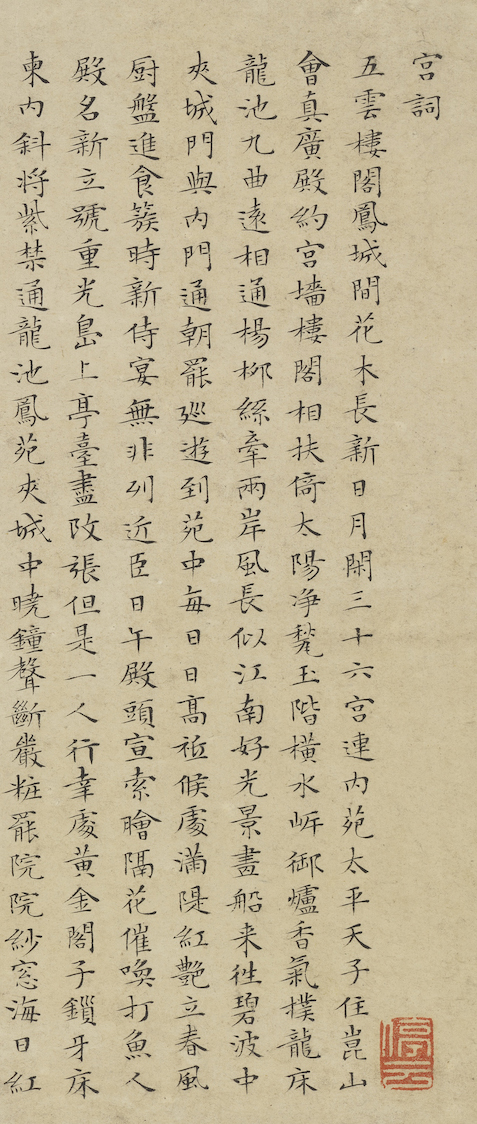 宮詞
五雲樓閣鳳城間花木長新日月閑三十六宮連内苑太平天子住崑山
會真廣殿約宮墻樓閣相扶倚太陽净甃玉階橫水岍御爐香氣撲龍床
龍池九曲遠相通楊柳絲牽兩岸風長似江南好光景畫船来徃碧波中
夾城門與内門通朝罷廵遊到苑中每日日髙祗候處滿隄紅艷立春風
厨盤進食簇時新侍宴無非列近臣日午殿頭宣索鱠隔花催喚打魚人
殿名新立號重光島上亭臺盡改張但是一人行幸處黄金閣子鎖牙床
東内斜将紫禁通龍池鳳苑夾城中曉鐘聲斷嚴粧罷院院紗窓海日紅
停云